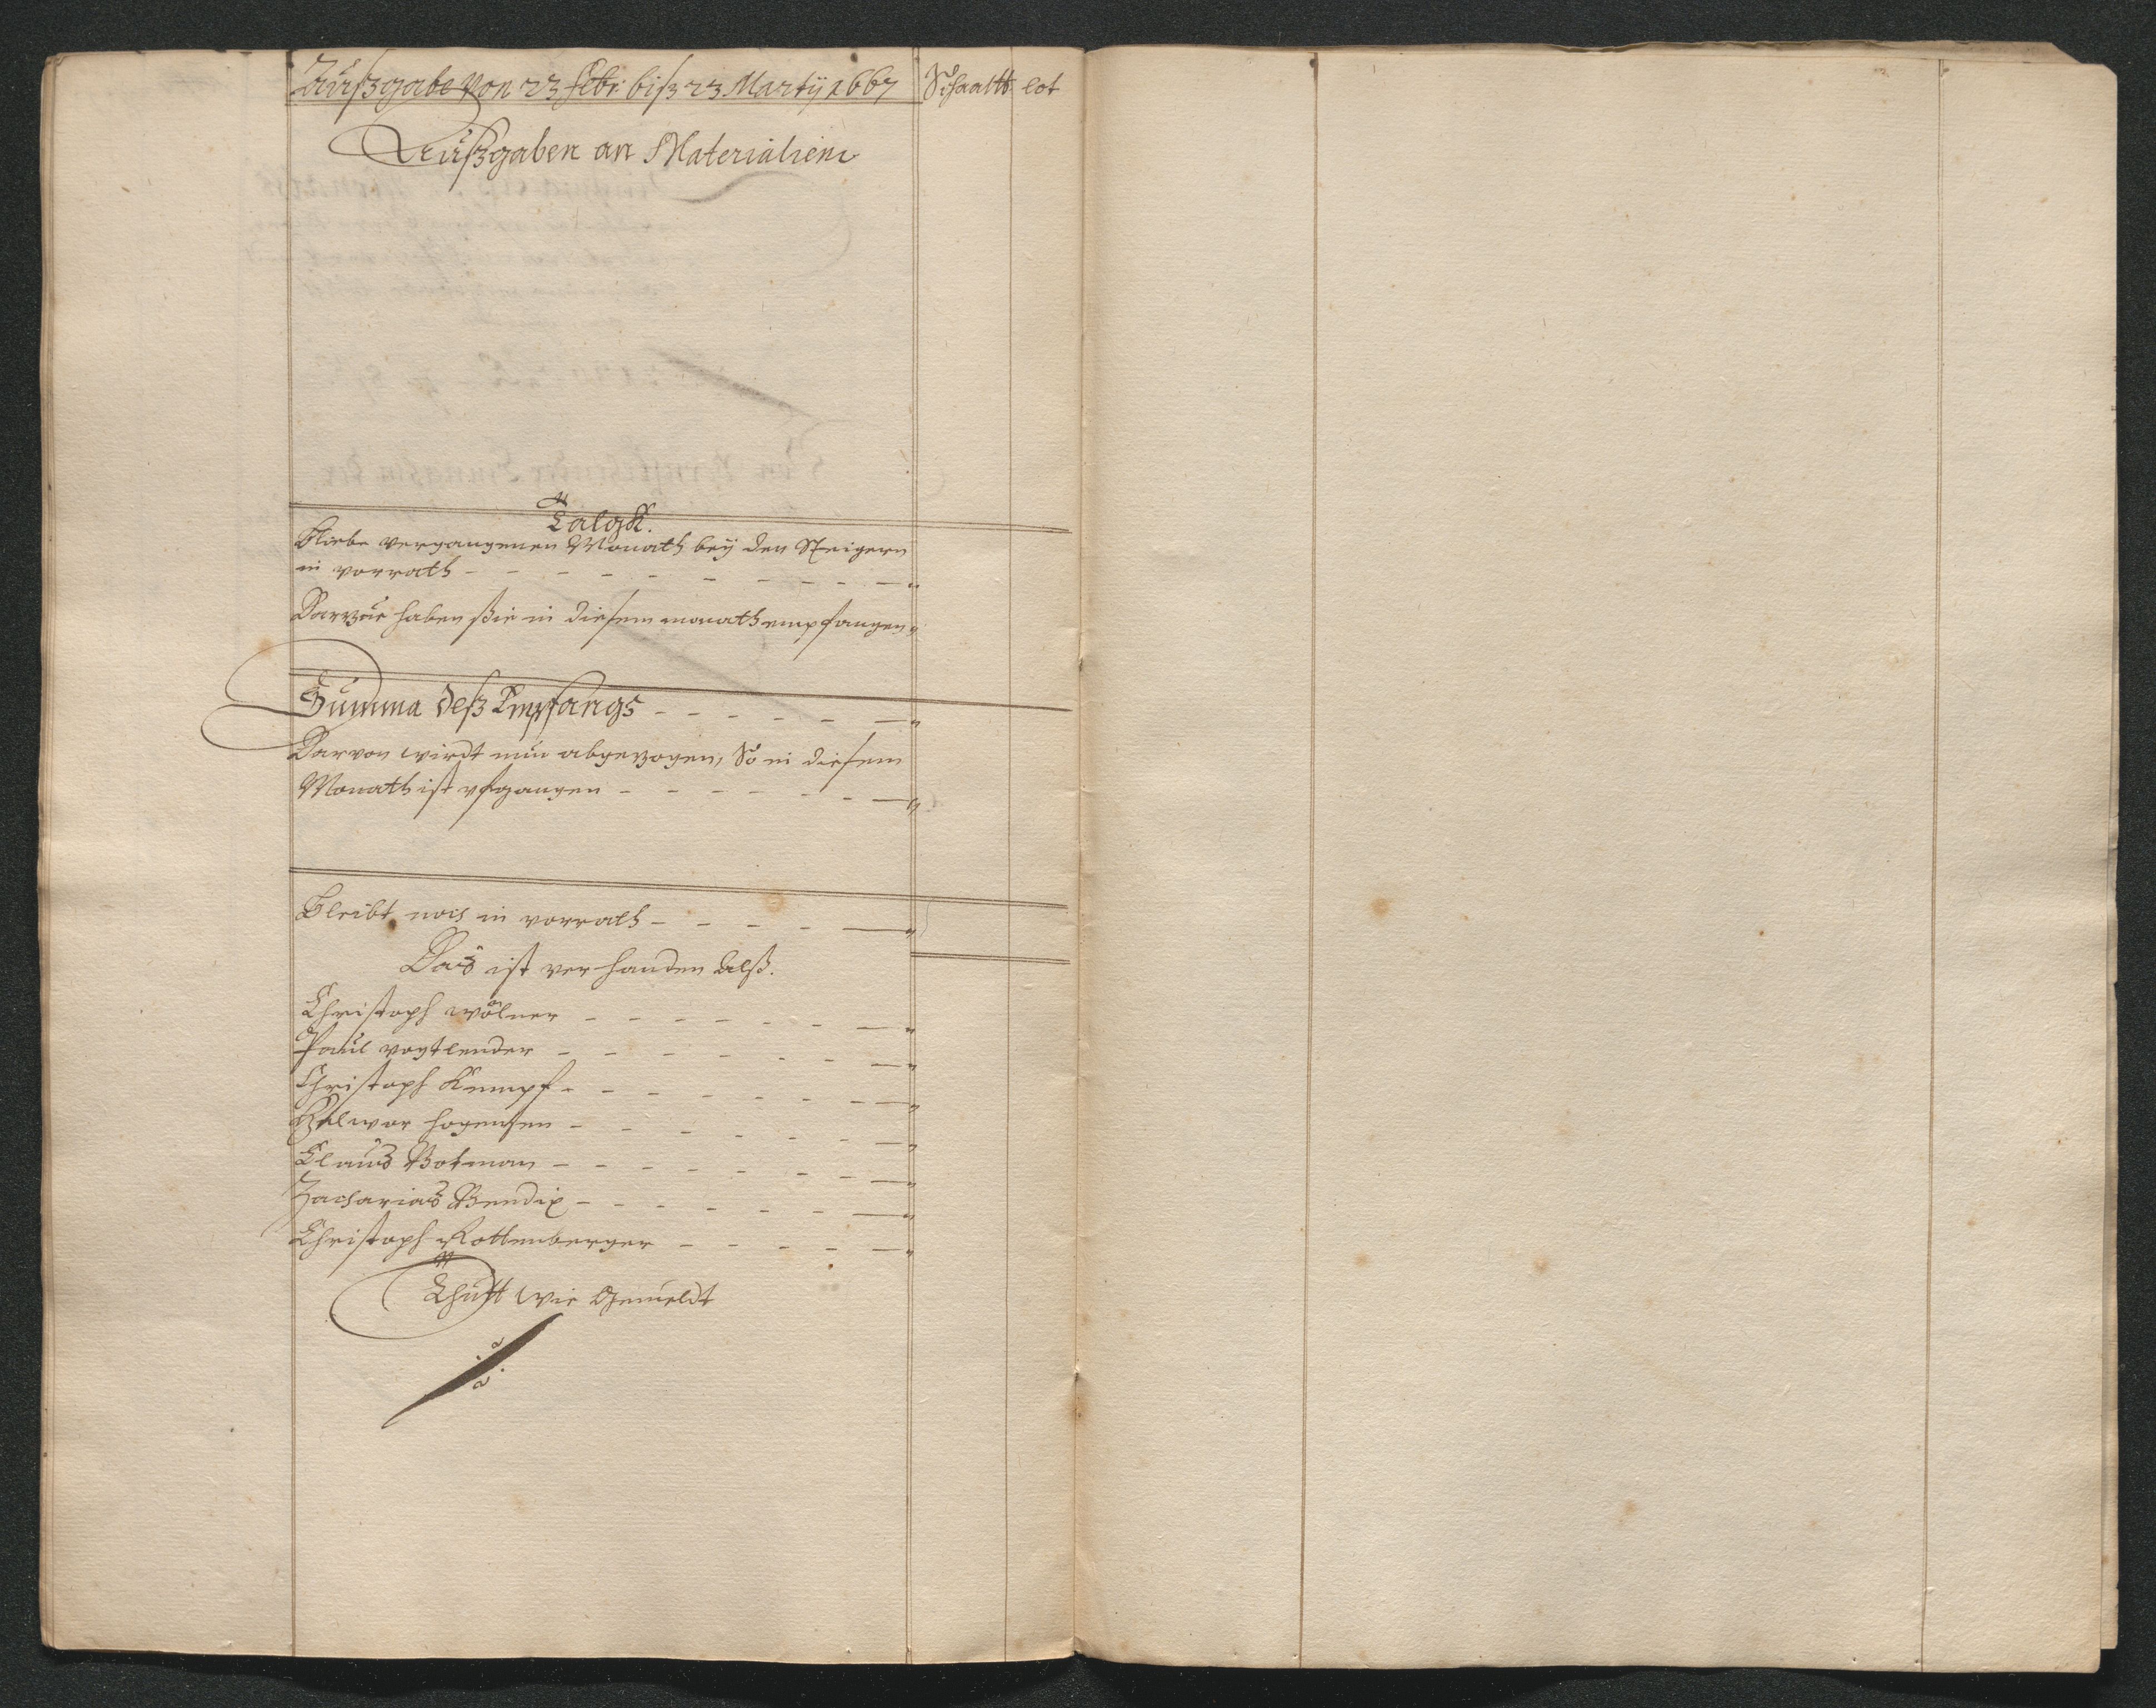 Außgabe von 23 feb: biß 23 Martÿ 1667 Schaaltt lot
Außgaben an Materialien
Talgk.
Bliebe vergangenen Monath beÿ den Steigern
in vorrath
Darzue haben ßie in diesem monath empfangen
Summa deß Empfangs
Darvon wirdt nun abgezogen, So in diesem
Monath ist ufgangen
Bleibt noch in vorrath
Das ist verhanden Alß.
Christoph wölner
Paul voytlender
Christoph Kempf
Halwor hogensen
Claus Botman
Zacharias Bendix
Christoph Rottenberger
Thutt wie Gemeldt